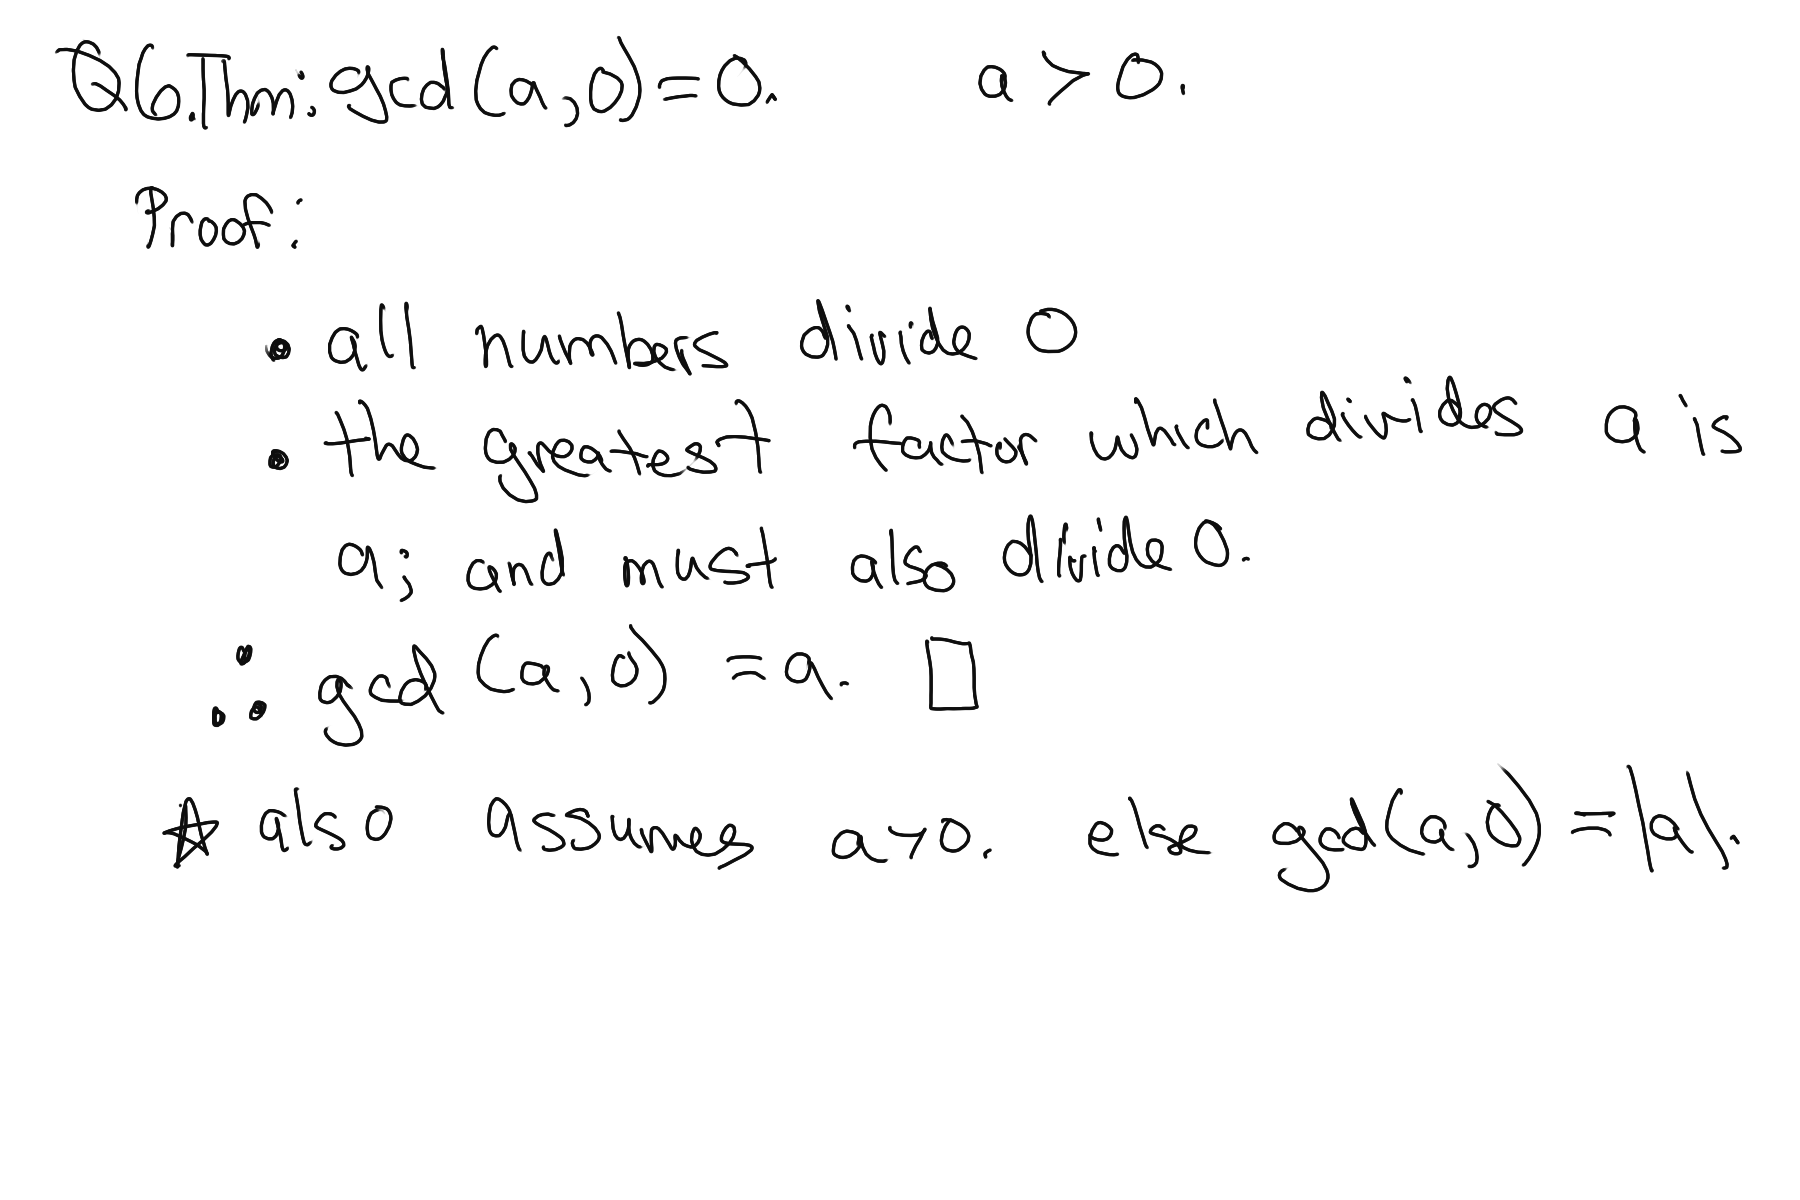 Q6. Thm: gcd(a,0)=0. a > 0.
Proof:
• all numbers divide 0
• the greatest factor which divides a is
a; and must also divide 0.
∴ gcd (a,0) = a. □
☆ also assumes a>0. else gcd(a,0) = |a|.